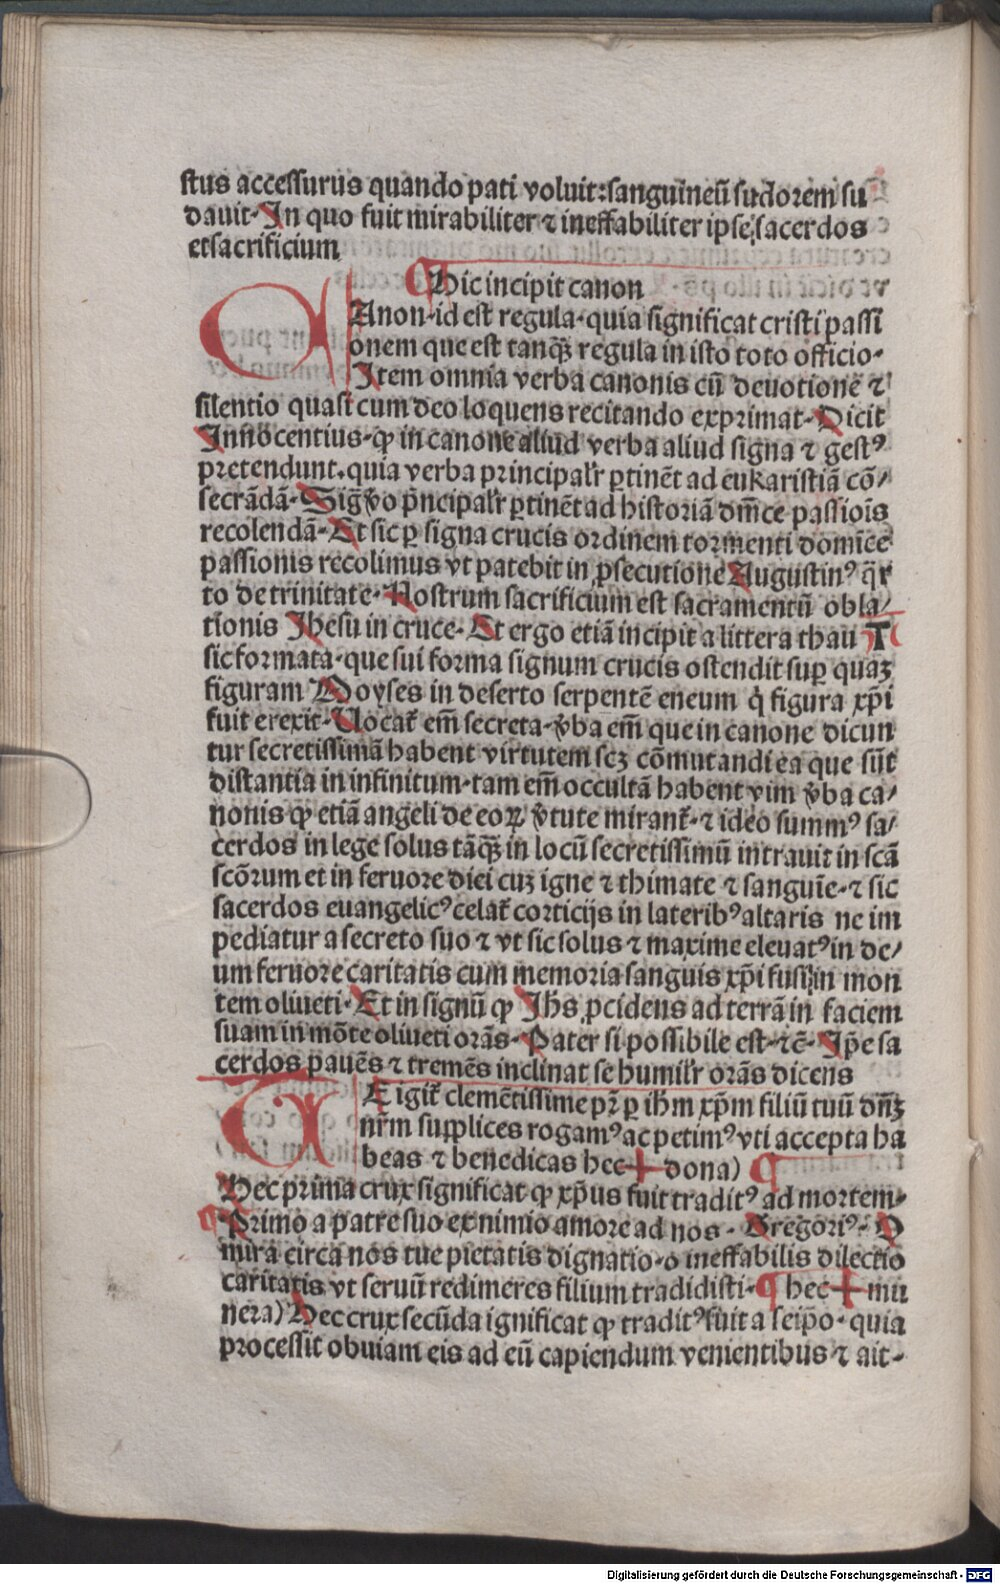 stus accessurus quando pati voluit: sanguineū sudorem su
dauit. In quo fuit mirabiliter ⁊ ineffabiliter ipse sacerdos
et sacrificium
¶ Hic incipit canon
CAnon. id est regula. quia significat cristi passi
onem que est tanqȝ regula in isto toto officio.
Item omnia verba canonis cū deuotione ⁊
silentio quasi cum deo loquens recitando exprimat. Dicit
Innocentius. ꝙ in canone aliud verba aliud signa ⁊ gestꝰ
pretendunt. quia verba principalr̄ ꝑtinēt ad eukaristiā cō/
secrādā. Sig v̄o pͥncipalr̄ ꝑtinēt ad historiā dn̄ice passiōis
recolendā. Et sic ꝑ signa crucis ordinem tormenti domīce
passionis recolimus vt patebit in ꝓsecutione Augustinꝰ q̄r
to de trinitate. Nostrum sacrificium est sacramentū obla/
tionis Jhesu in cruce. Et ergo etiā incipit a littera thau T
sic formata. que sui forma signum crucis ostendit suꝑ quaȝ
figuram Moyses in deserto serpentē eneum q̇ figura xp̄i
fuit erexit. Uocat̄ em̄ secreta. v̄ba em̄ que in canone dicun
tur secretissimā habent virtutem scȝ cōmutandi ea que sūt
distantia in infinitum. tam em̄ occultā habent vim v̄ba ca/
nonis ꝙ etiā angeli de eoꝝ v̄tute mirant̄. ⁊ ideo summꝰ sa/
cerdos in lege solus tāqȝ in locū secretissimū intrauit in scā
scōrum et in feruore diei cuȝ igne ⁊ thimate ⁊ sanguīe. ⁊ sic
sacerdos euangelicꝰ celat̄ corticijs in lateribꝰ altaris ne im
pediatur a secreto suo ⁊ vt sic solus ⁊ maxime eleuatꝰ in de/
um feruore caritatis cum memoria sanguis xp̄i fusi in mon
tem oliueti. Et in signū ꝙ Jhs ꝓcidens ad terrā in faciem
suam in mōte oliueti orās. Pater si possibile est. ⁊c̄. Ip̄e sa
cerdos pauēs ⁊ tremēs inclinat se humilr̄ orās dicens
TE igit̄ clemētissime pr̄ ꝑ ihm xp̄m filiū tuū dn̄ȝ
nr̄m supplices rogamꝰ ac petimꝰ vti accepta ha
beas ⁊ benedicas hec ✚ dona) ¶
Hec prima crux significat ꝙ xp̄us fuit traditꝰ ad mortem.
¶ Primo a patre suo ex nimio amore ad nos. Gregoriꝰ. O
mira circa nos tue pietatis dignatio. o ineffabilis dilectio
caritatis vt seruū redimeres filium tradidisti. ¶ hec ✚ mu
nera) Hec crux secūda ignificat ꝙ traditꝰ fuit a seip̄o. quia
processit obuiam eis ad eū capiendum venientibus ⁊ ait.
Digitalisierung gefördert durch die Deutsche Forschungsgemeinschaft - DFG